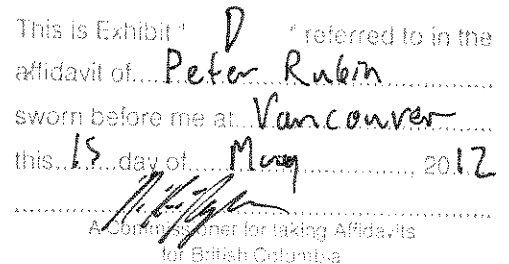 This is Exhibit " D " referred to in the
affidavit of.....Peter Rubin
sworn before me at...Vancouver
this..15...day of......May................, 2012
A Commissioner for taking Affidavits
for British Columbia